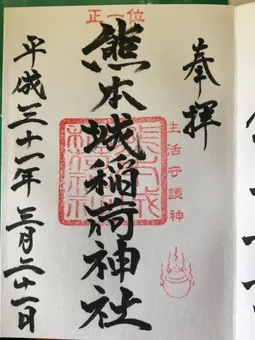 奉拝
生活守護神
正一位
熊本城稲荷神社
平成三十一年三月二十一日